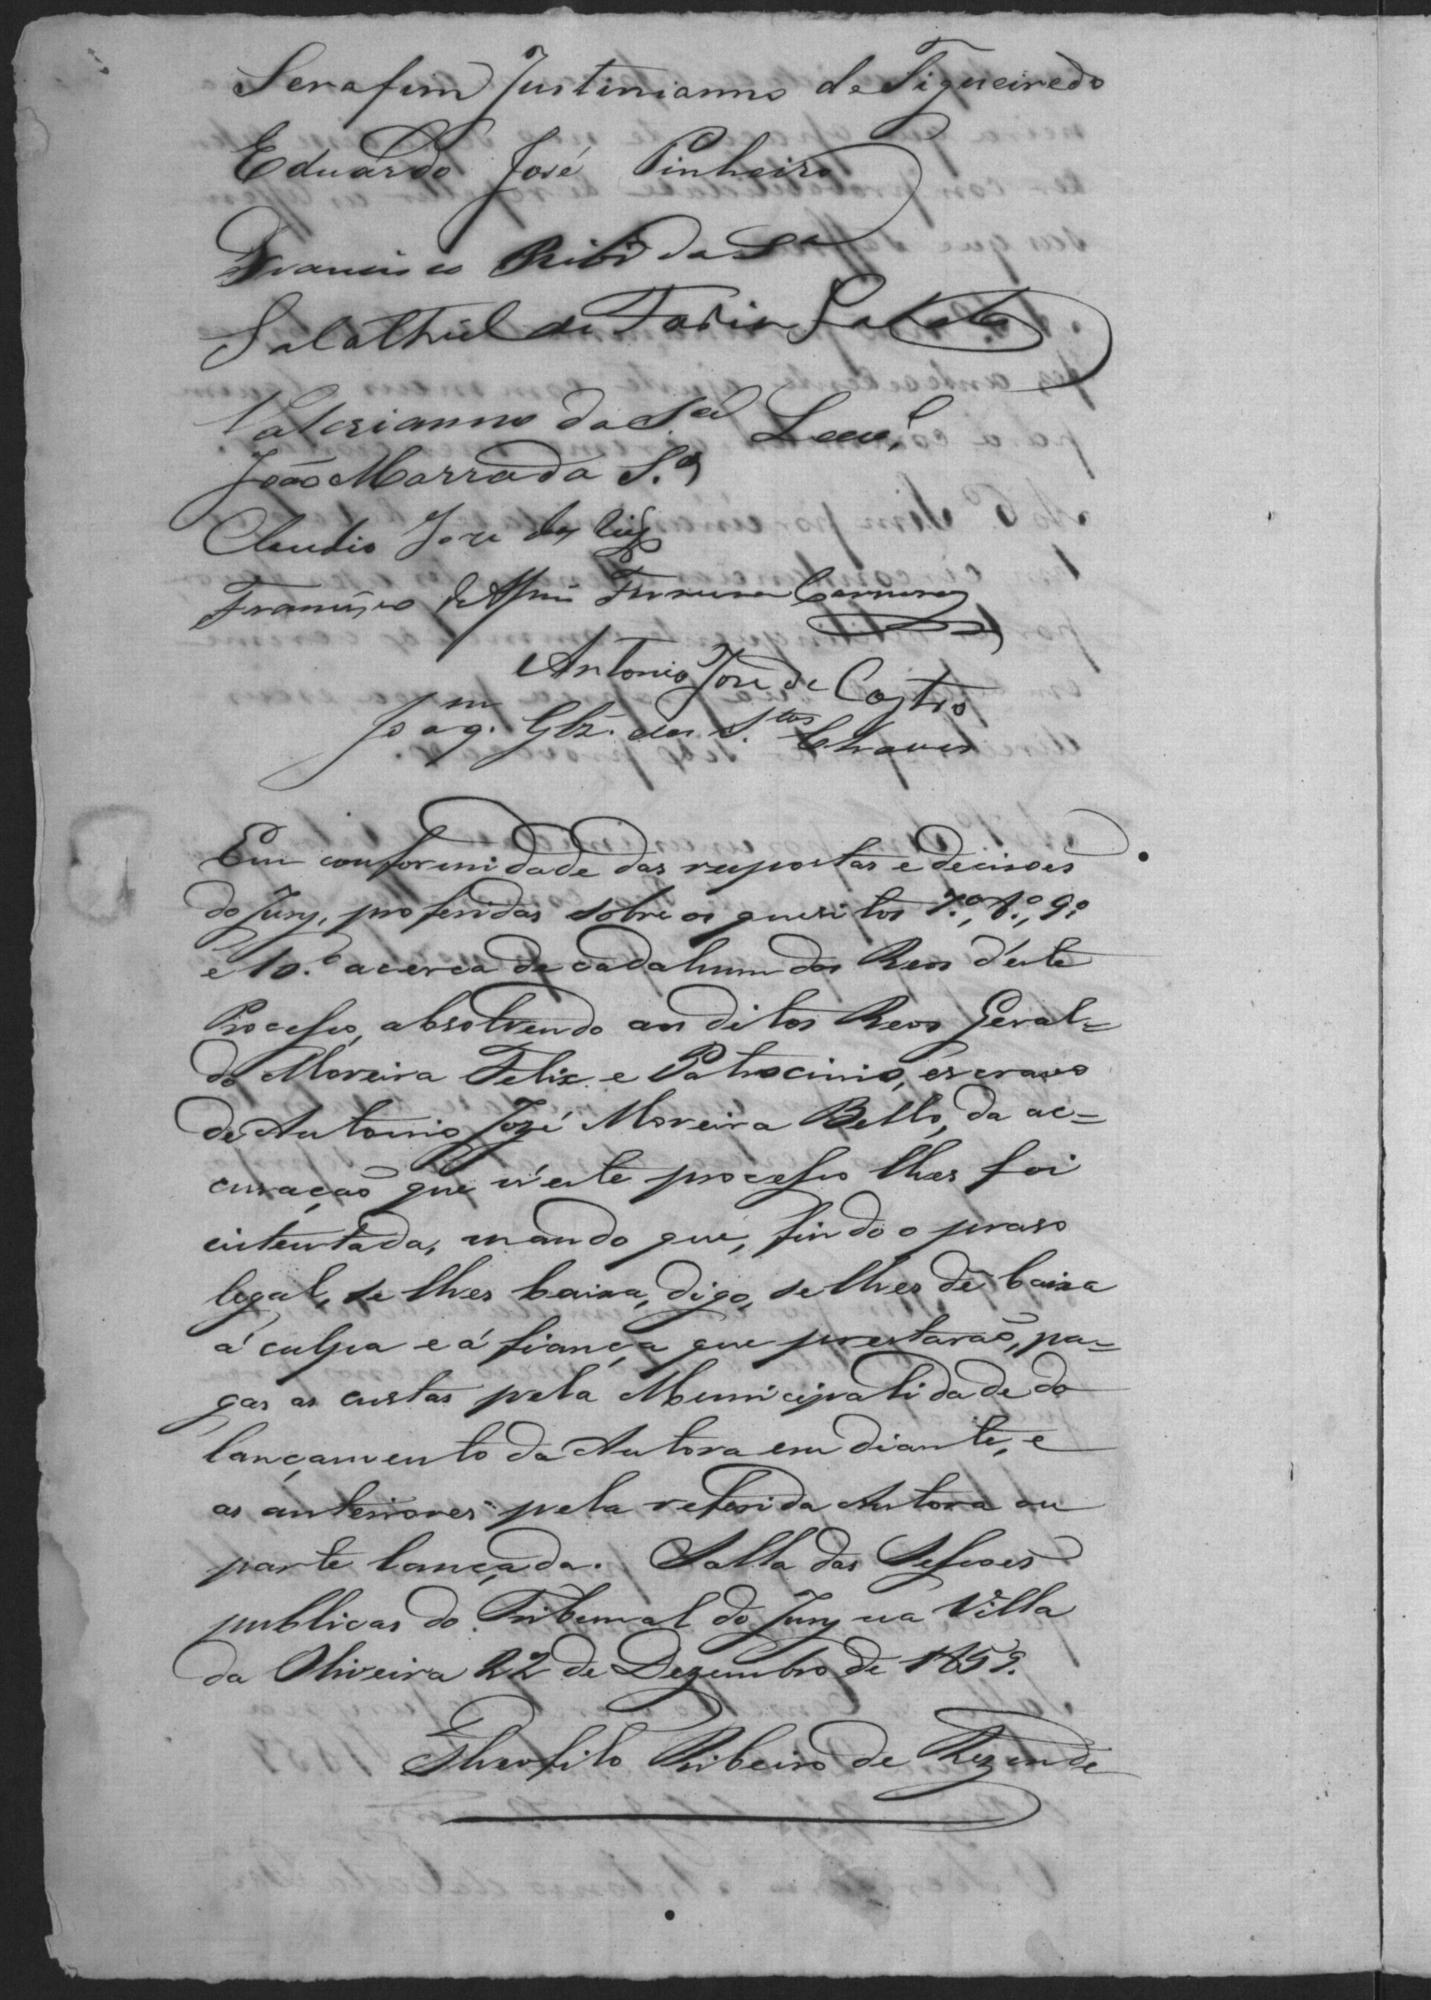 Serafim Justinianno de Figueiredo
Eduardo José Pinheiro
Francisco Ribr.º da S.ª
Salathiel de Faria Lobato
Valerianno da S.ª
João Marra da S.ª
Claudio José da
Francisco de Assis Ferreira Carneiro
Antonio José de Castro
Joaq.m Glz. dos S.tos Chaves
Em conformidade das respostas e decisoes
do Jury, proferidas sobre os quesitos 7.º, 8.º, 9.º
e 10.º acerca de cada hum dos Reos d'este
Processo, absolvendo aos ditos Reos Geral=
do Moreira Felix e Patrocinio, escravo
de Antonio José Moreira Bello, da ac=
cusação que n'este processo lhes foi
intentada, mando que, findo o praso
legal, se lhes baixa, digo, se lhes dê baixa
á culpa e á fiança que prestarão, pa=
gas as custas pela Municipalidade do
lançamento da Autora em diante, e
as anteriores pela referida Autora ou
parte lançada. Salla das Sessoes
publicas do Tribunal do Jury na Villa
da Oliveira 22 de Dezembro de 1859.
Theofilo Ribeiro de Rezende